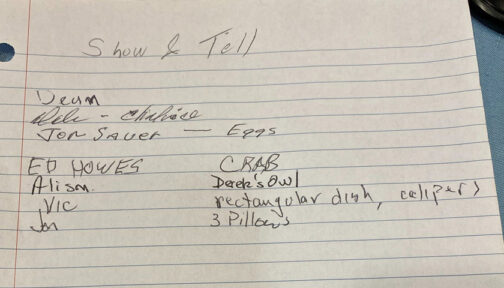 Show & Tell
Dean
Dale - Chalice
Jon Sauer — Eggs
ED HOWES CRAB
Alison Derek's Owl
Vic rectangular dish, calipers
Jon 3 Pillows